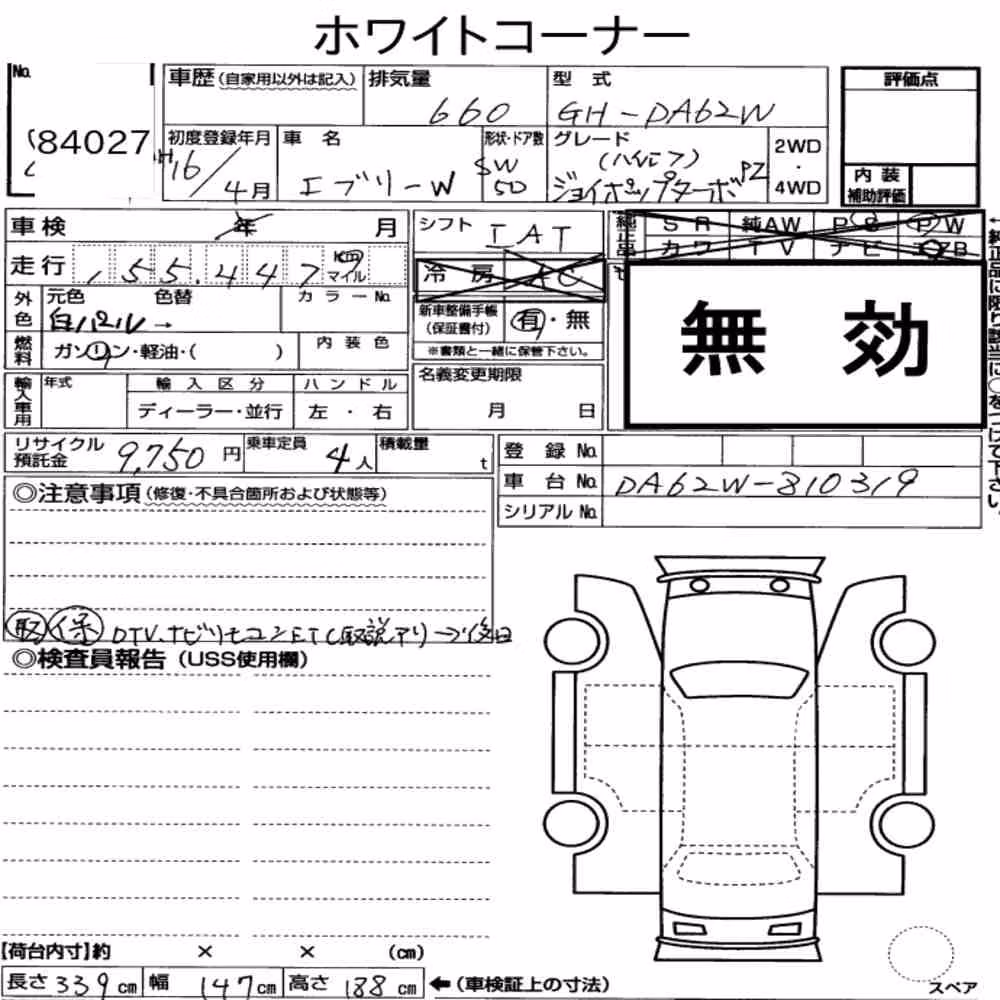 ホワイトコーナー
No.
84027
車歴(自家用以外は記入)
排気量
660
型式
GH-DA62W
評価点
初度登録年月
H16/4月
車名
エブリーW
形状・ドア数
SW
5D
グレード
(ハイルーフ)
ジョイポップターボ PZ
2WD
・
4WD
内装
補助評価
車検 年 月
シフト IAT
純正品
SR 純AW PS PW
カワ TV ナビ エアB
走行 155,447 km
マイル
冷房 AC
外色
元色 色替
カラーNo.
白パール→
新車整備手帳
(保証書付)
有・無
※書類と一緒に保管下さい。
無効
燃料
ガソリン・軽油・( )
内装色
輸入車用
年式
輸入区分
ハンドル
ディーラー・並行
左・右
名義変更期限
月 日
←純正品に限り該当に○をつけて下さい。
リサイクル
預託金
9,750円
乗車定員
4人
積載量
t
登録No.
車台No. DA62W-810319
シリアルNo.
◎注意事項(修復・不具合箇所および状態等)
取 保 DTV、ナビリモコンETC取説アリ→後日
◎検査員報告(USS使用欄)
【荷台内寸】約 × × (cm)
長さ339cm 幅147cm 高さ188cm ←(車検証上の寸法)
スペア